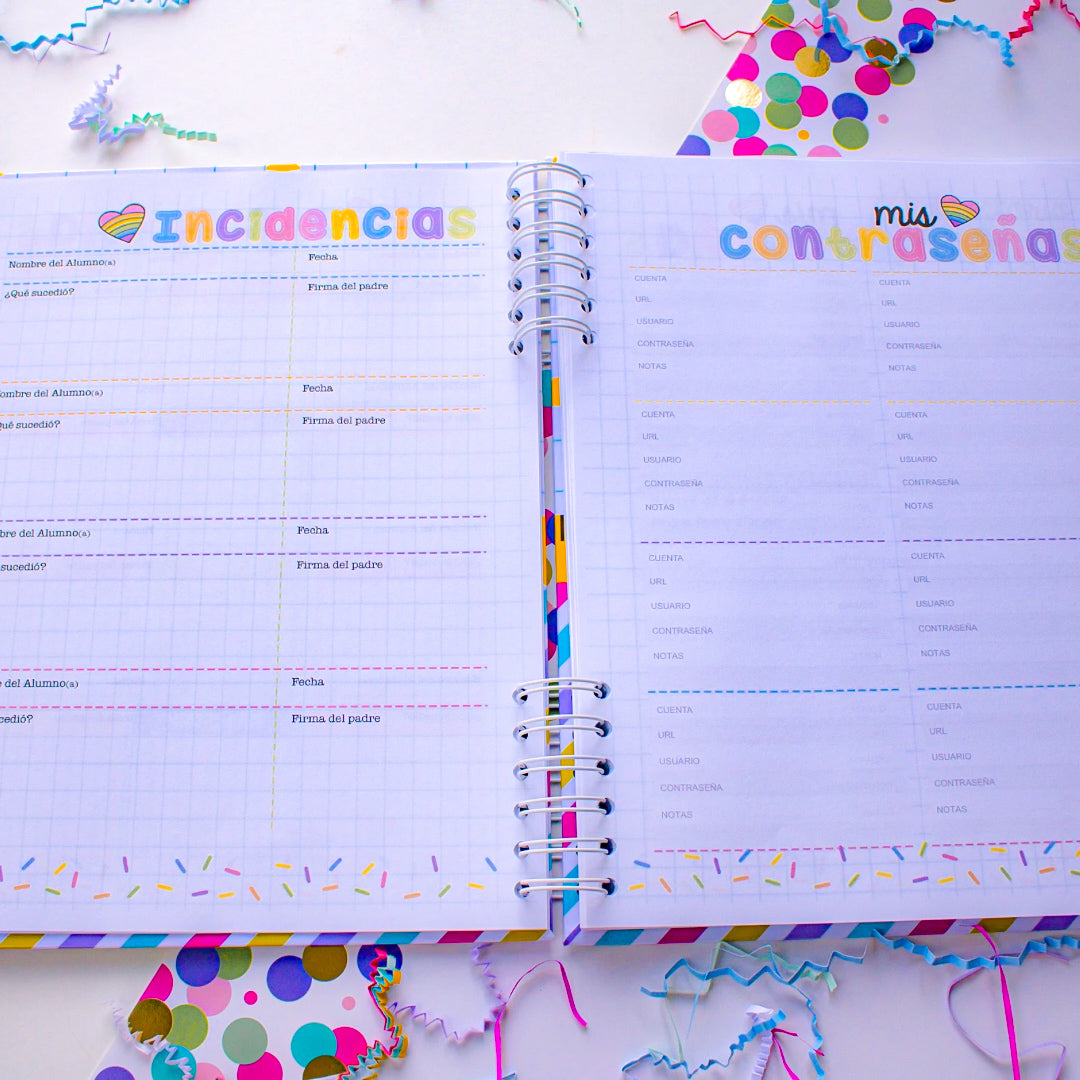 Incidencias
Nombre del Alumno(a) Fecha
¿Qué sucedió? Firma del padre
ombre del Alumno(a) Fecha
Qué sucedió? Firma del padre
bre del Alumno(a) Fecha
sucedió? Firma del padre
del Alumno(a) Fecha
cedió? Firma del padre
mis
contraseñas
CUENTA CUENTA
URL URL
USUARIO USUARIO
CONTRASEÑA CONTRASEÑA
NOTAS NOTAS
CUENTA CUENTA
URL URL
USUARIO USUARIO
CONTRASEÑA CONTRASEÑA
NOTAS NOTAS
CUENTA CUENTA
URL URL
USUARIO USUARIO
CONTRASEÑA CONTRASEÑA
NOTAS NOTAS
CUENTA CUENTA
URL URL
USUARIO USUARIO
CONTRASEÑA CONTRASEÑA
NOTAS NOTAS